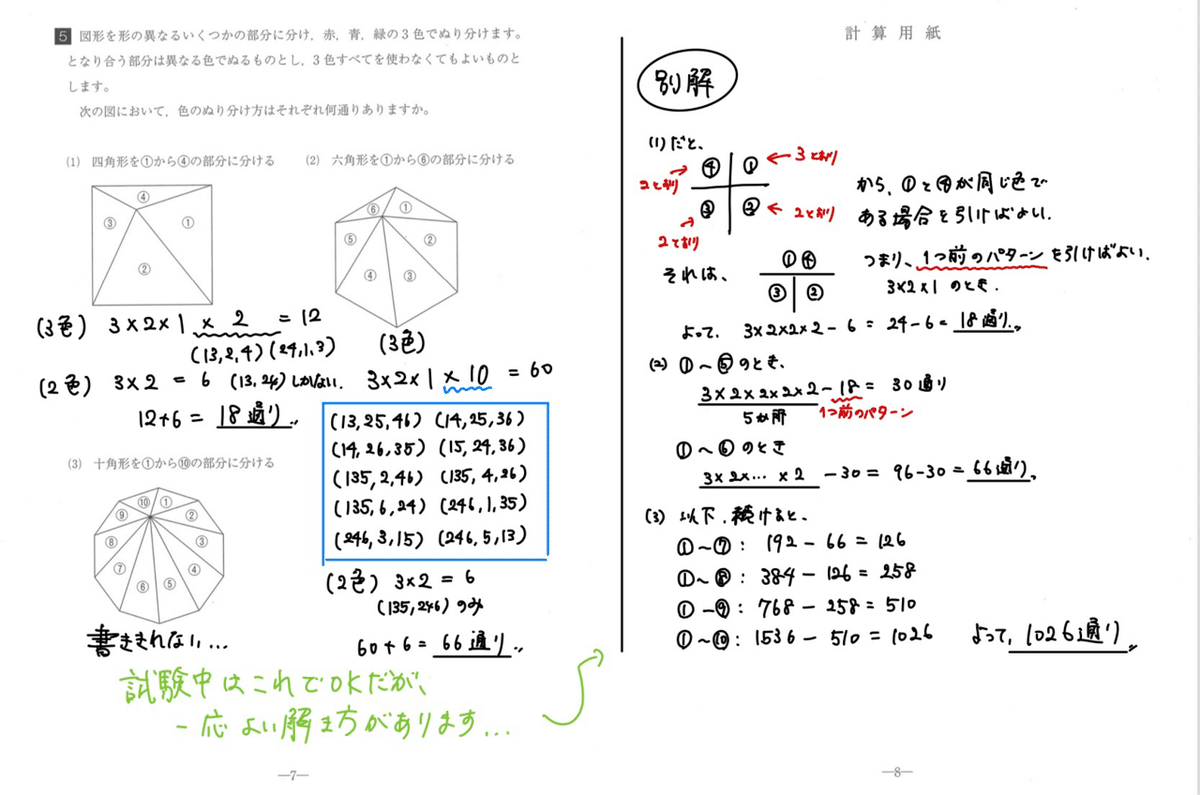 5 図形を形の異なるいくつかの部分に分け,赤,青,緑の3色でぬり分けます。
となり合う部分は異なる色でぬるものとし,3色すべてを使わなくてもよいものと
します。
次の図において,色のぬり分け方はそれぞれ何通りありますか。
(1) 四角形を①から④の部分に分ける
(2) 六角形を①から⑥の部分に分ける
④
③
①
②
⑥
①
⑤
②
④
③
(3色) 3×2×1×2=12
(13,2,4)(24,1,3)
(2色) 3×2=6 (13,24)しかない.
12+6=18通り.
(3色)
3×2×1×10=60
(13,25,46)(14,25,36)
(14,26,35)(15,24,36)
(135,2,46)(135,4,26)
(135,6,24)(246,1,35)
(246,3,15)(246,5,13)
(2色) 3×2=6
(135,246)のみ
60+6=66通り.
(3) 十角形を①から⑩の部分に分ける
⑩
①
⑨
②
⑧
③
⑦
④
⑥
⑤
書ききれない...
試験中はこれでOKだが、
一応よい解き方があります...
—7—
計算用紙
別解
(1)だと、
④
①
←3とおり
2とおり
③
②
←2とおり
2とおり
から、①と④が同じ色で
ある場合を引けばよい.
それは、
①④
③
②
つまり、1つ前のパターンを引けばよい.
3×2×1のとき.
よって. 3×2×2×2-6=24-6=18通り.
(2) ①~⑤のとき.
3×2×2×2×2-18=30通り
5か所
1つ前のパターン
①~⑥のとき
3×2×...×2-30=96-30=66通り.
(3) 以下.続けると.
①~⑦:192-66=126
①~⑧:384-126=258
①~⑨:768-258=510
①~⑩:1536-510=1026 よって,1026通り.
—8—